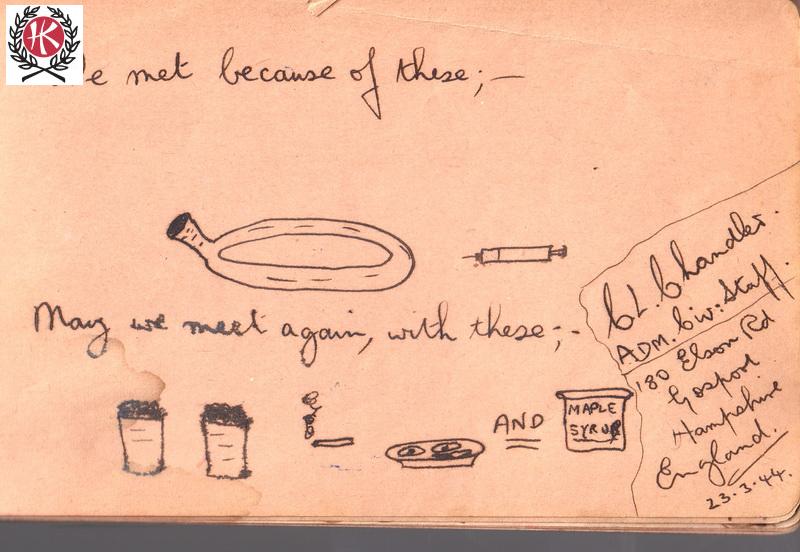 HK
We met because of these;—
May we meet again, with these;-
AND
MAPLE
SYRUP
C.L. Chandler.
ADM. Civ: Staff.
180 Elson Rd
Gosport
Hampshire
England.
23.3.44.